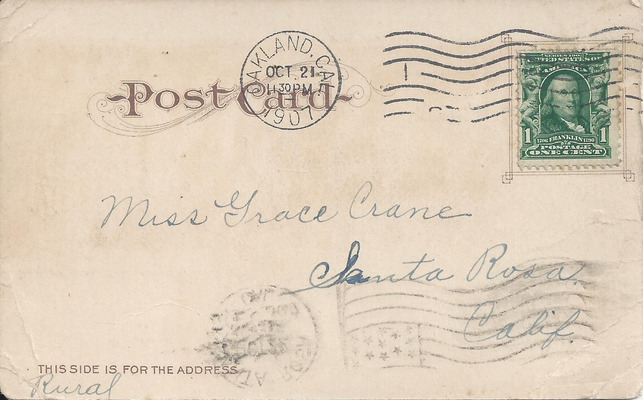 OAKLAND, CAL.
OCT 21
11 30 PM
1907
Post Card
SERIES 1902
UNITED STATES OF
AMERICA
1 1706 FRANKLIN 1790 1
POSTAGE
ONE CENT
Miss Grace Crane
Santa Rosa
Calif.
THIS SIDE IS FOR THE ADDRESS
Rural